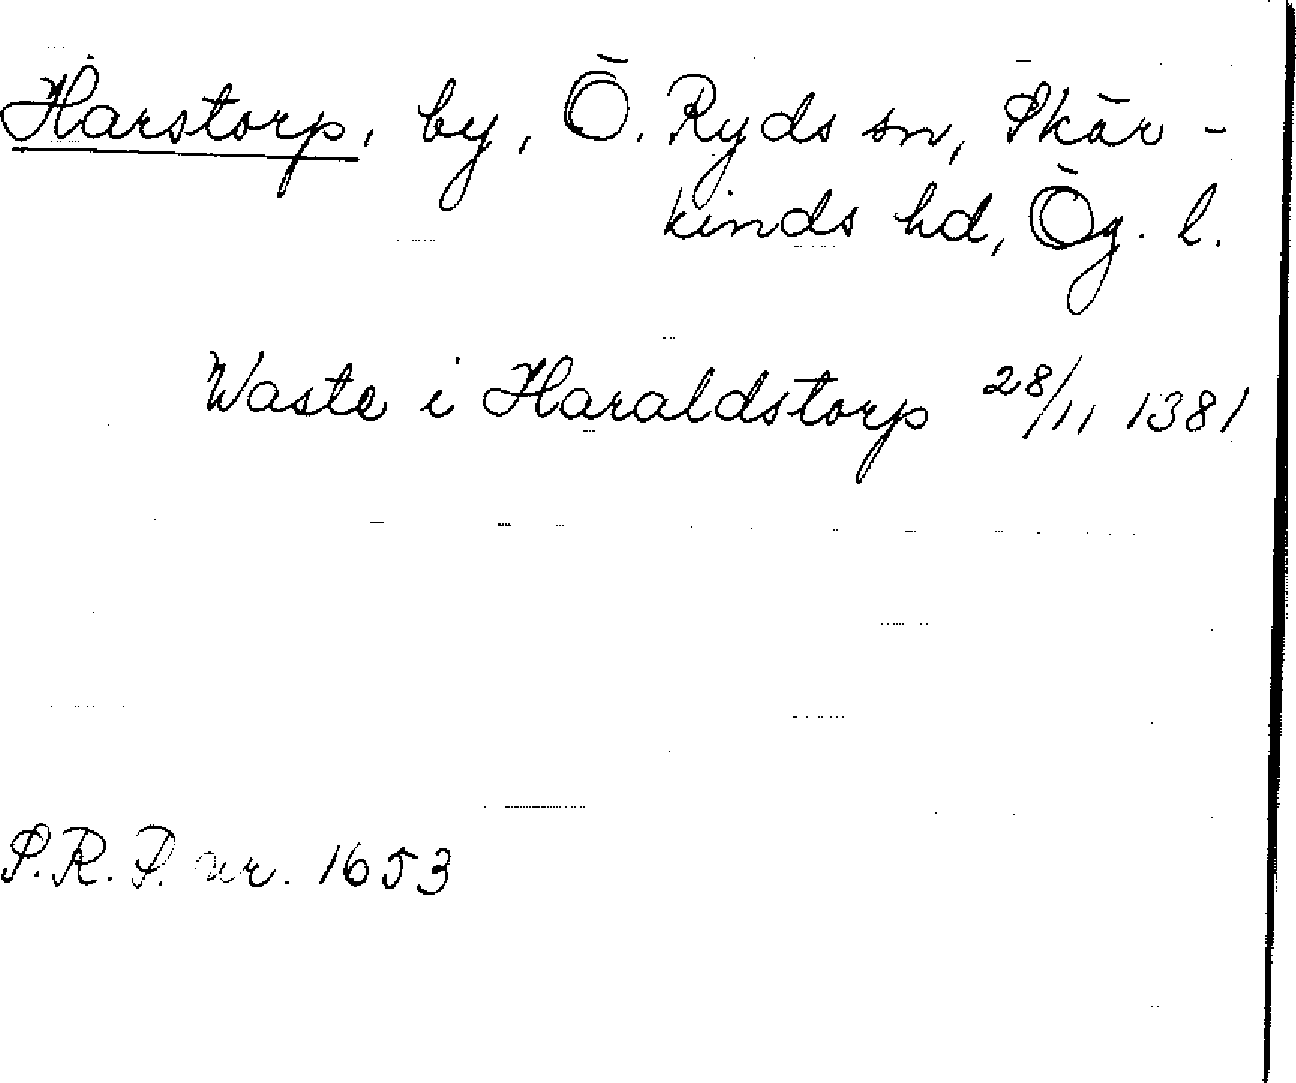 Harstorp, by, Ö. Ryds sn, Skär-
kinds hd, Ög. l.
Waste i Haraldstorp 28/11 1381
S.R.P. nr. 1653